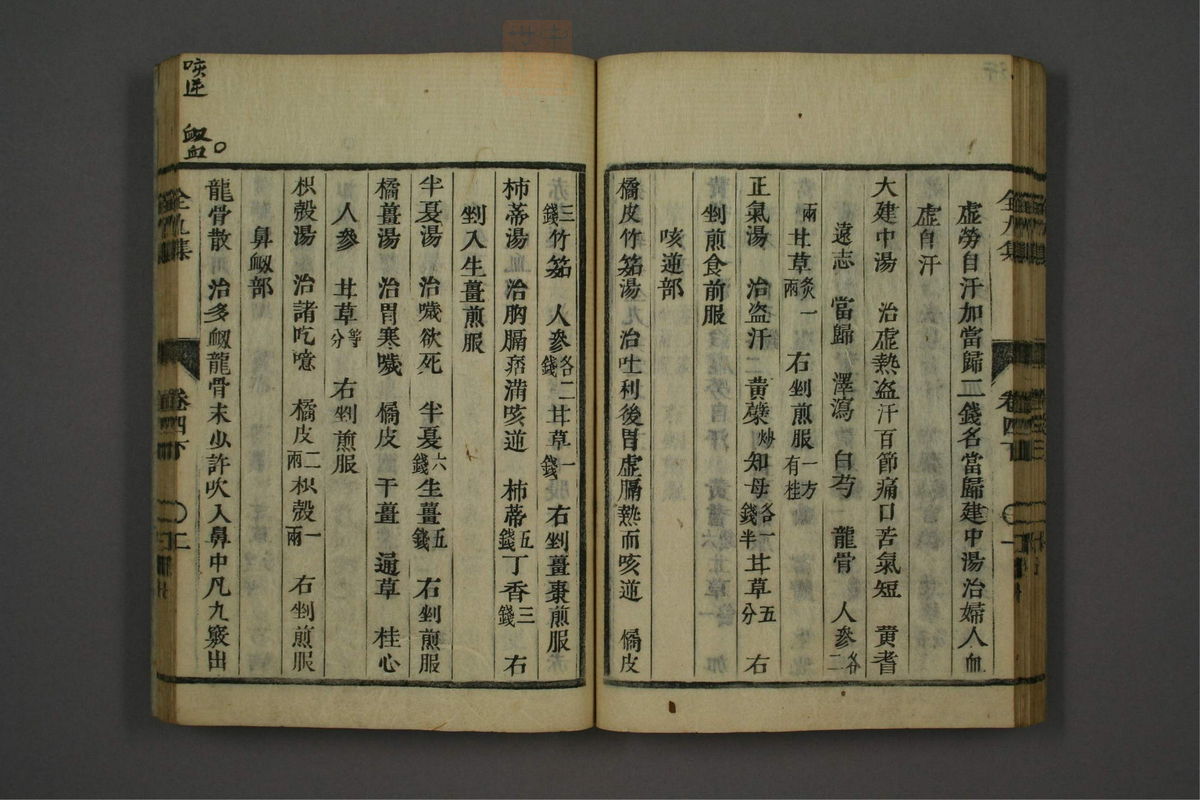 虛勞自汗加當歸二錢名當歸建中湯治婦人血
虛自汗
大建中湯　治虛熱盜汗百節痛口苦氣短　黄耆
遠志　當歸　澤瀉　白芍　龍骨　人參各二
兩甘草炙一兩　右剉煎服一方有桂
正氣湯　治盗汗　黄蘗炒知母各一錢半甘草五分　右
剉煎食前服
咳逆部
橘皮竹筎湯　治吐利後胃虛膈熱而咳逆　橘皮
三錢竹筎　人參各二錢甘草一錢　右剉薑棗煎服
柿蒂湯　治胸膈痞滿咳逆　柿蒂五錢丁香三錢　右
剉入生薑煎服
半夏湯　治噦欲死　半夏六錢生薑五錢　右剉煎服
橘薑湯　治胃寒噦　橘皮　干薑　通草　桂心
人參　甘草等分　右剉煎服
枳殼湯　治諸吃噫　橘皮二兩枳殼一兩　右剉煎服
鼻衂部
龍骨散　治多衂龍骨末少許吹入鼻中凡九竅出
全九集　卷四下　〇二
咳逆　衂血